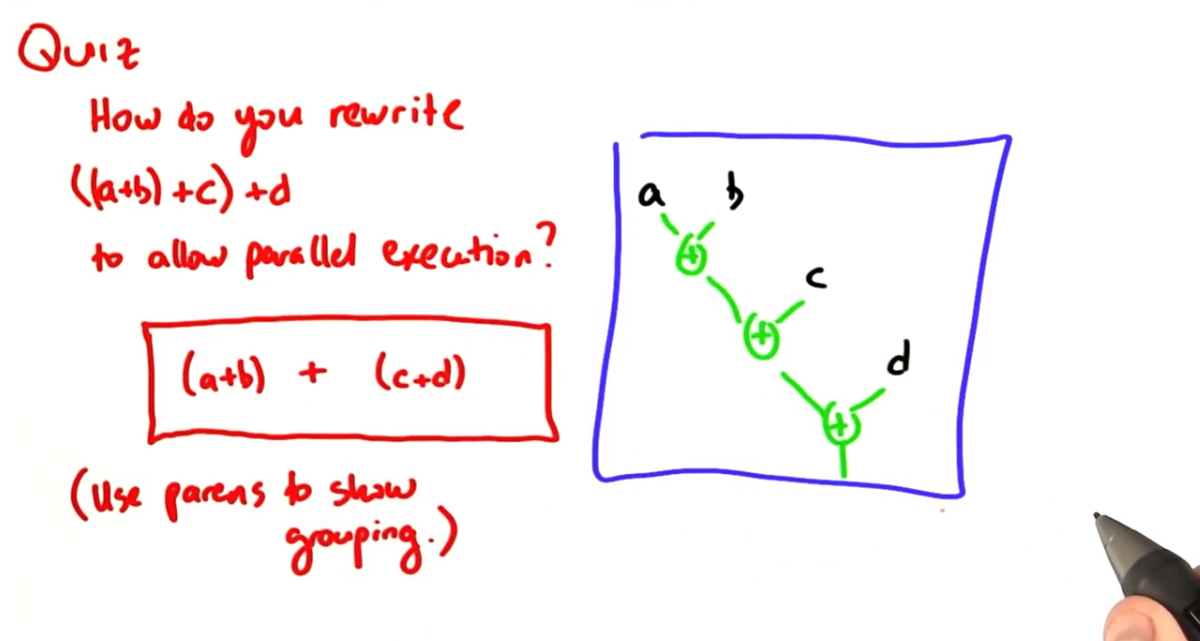 Quiz
How do you rewrite
((a+b)+c)+d
to allow parallel execution?
(a+b) + (c+d)
(Use parens to show
grouping.)
a b
+
c
+
d
+